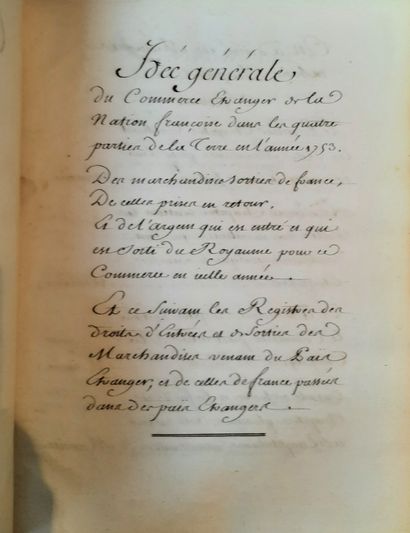 Idée générale
du Commerce Etranger de la
Nation françoise dans les quatre
parties de la Terre en l'année 1753.
Des marchandises sorties de france,
De celles prises en retour,
Et de l'argent qui est entré et qui
est sorti du Royaume pour ce
Commerce en icelle année.
Et ce suivant les Registres des
droits d'Entrées et de Sorties des
Marchandises venant du Païs
Etranger, et de celles de france passées
dans des païs Etrangers.